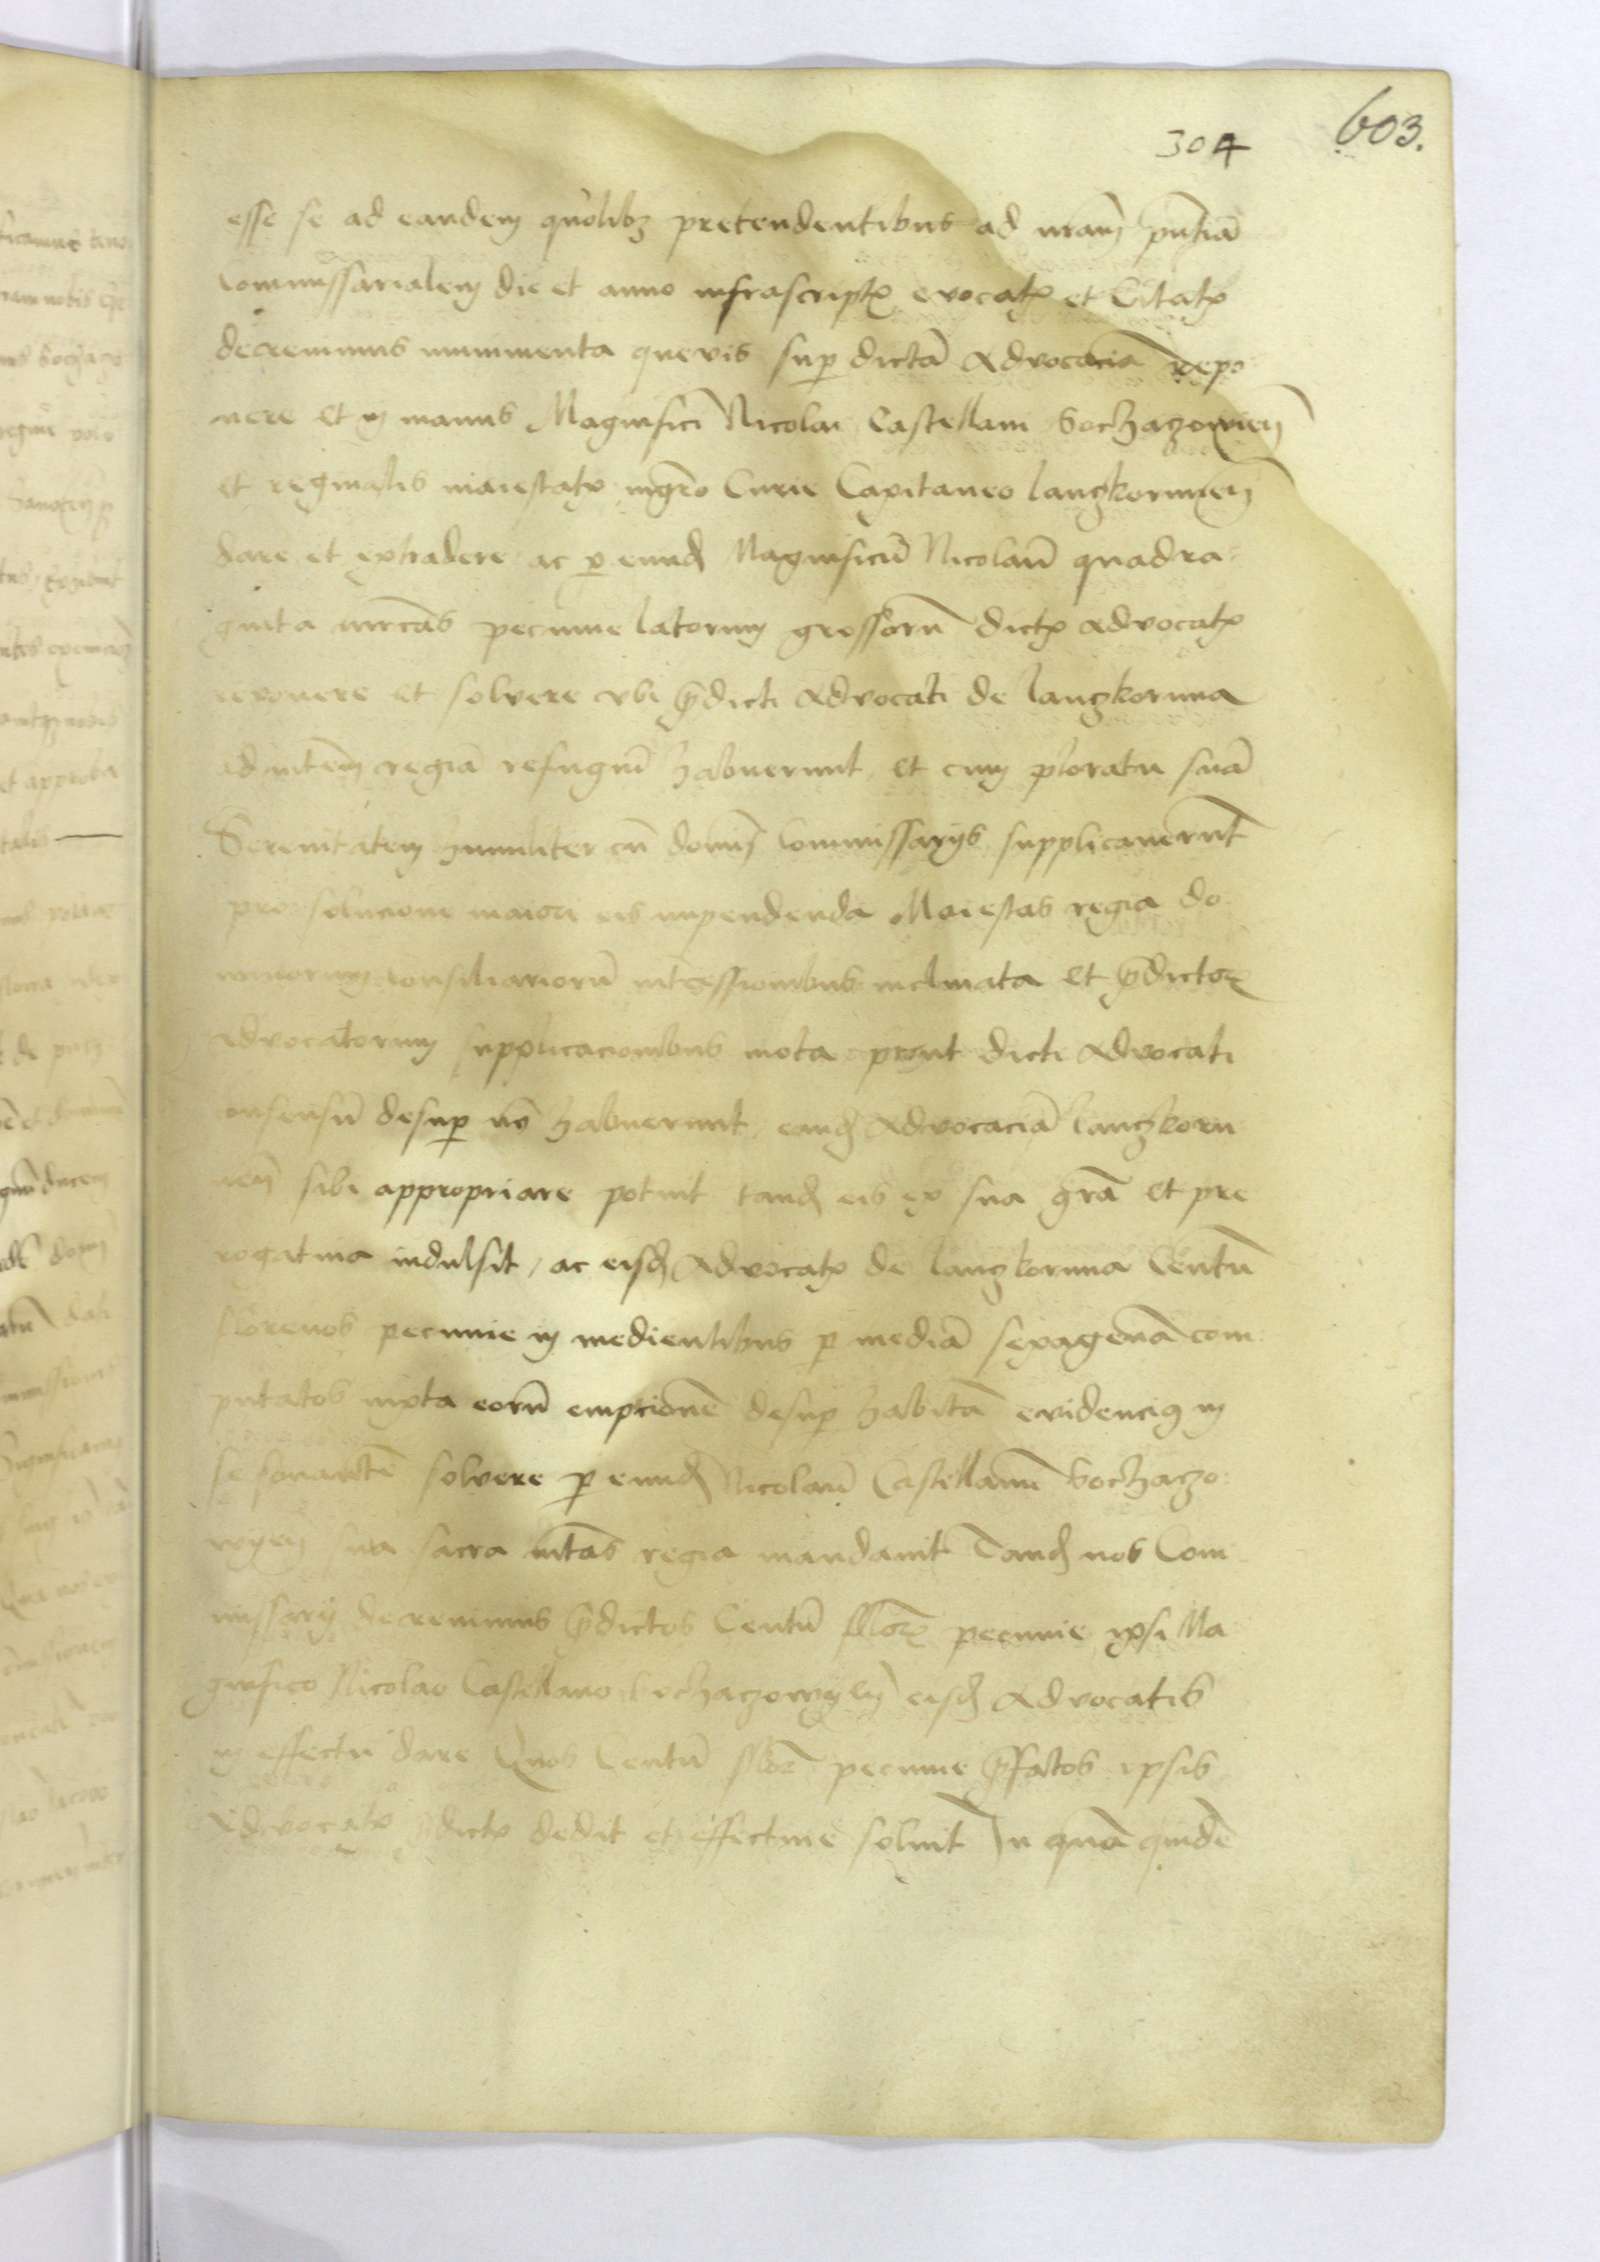 304 603.
esse se ad eandem quolibz pretendentibus ad nram̄ pn̄tiā
commissarialem die et anno infrascriptꝭ evocatꝭ et Citatꝭ
decrevimus munimenta quevis suꝑ dictā Advocaciā depo
nere et in manus Magnifici Nicolai Castellani Sochazowien̄
et reginalis maiestatꝭ mgr̄o Curie Capitaneo lanczkorunien̄
dare et extradere ac ꝑ eund Magnificū Nicolaū quadra
ginta mrcas pecunie latorum grossorū dictꝭ Advocatꝭ
reponere et solvere vbi p̄dicti Advocati de lanczkoruna
ad mtem̄ regiā refugiū habuerunt et cum ploratu suā
Serenitatem humiliter cū domīs Commissarijs supplicaverūt
pro solucione maiori eis impendenda Maiestas regia do
minorum consiliariorū intcessionibus inclinata et p̄dictoꝝ
advocatorum supplicacionibus mota prout dicti Advocati
consensū desuꝑ nō habuerunt eand Advocaciā lanczkoru
nien̄ sibi appropriare potuit tand eis ex sua grā et pre
rogativa indulsit, ac eisd Advocatꝭ de lanczkoruna Centū
florenos pecunie in medientibus ꝑ mediā sexagenā com
putatos iuxta eorū empcionē desuꝑ habitā evidencius in
se sonantē solvere ꝑ eund Nicolaū Castellanū Sochaczo
wyen̄ sua sacra mtas regia mandavit Tand nos Com
missarij decrevimus p̄dictos Centū floꝝ pecunie ipsi Ma
gnifico Nicolao Castellano Sochaczowyen̄ eisd Advocatis
in effectu dare Quos Centū floꝝ pecunie p̄fatos ipsis
Advocatꝭ p̄dictꝭ dedit et effective solvit In quā quidē